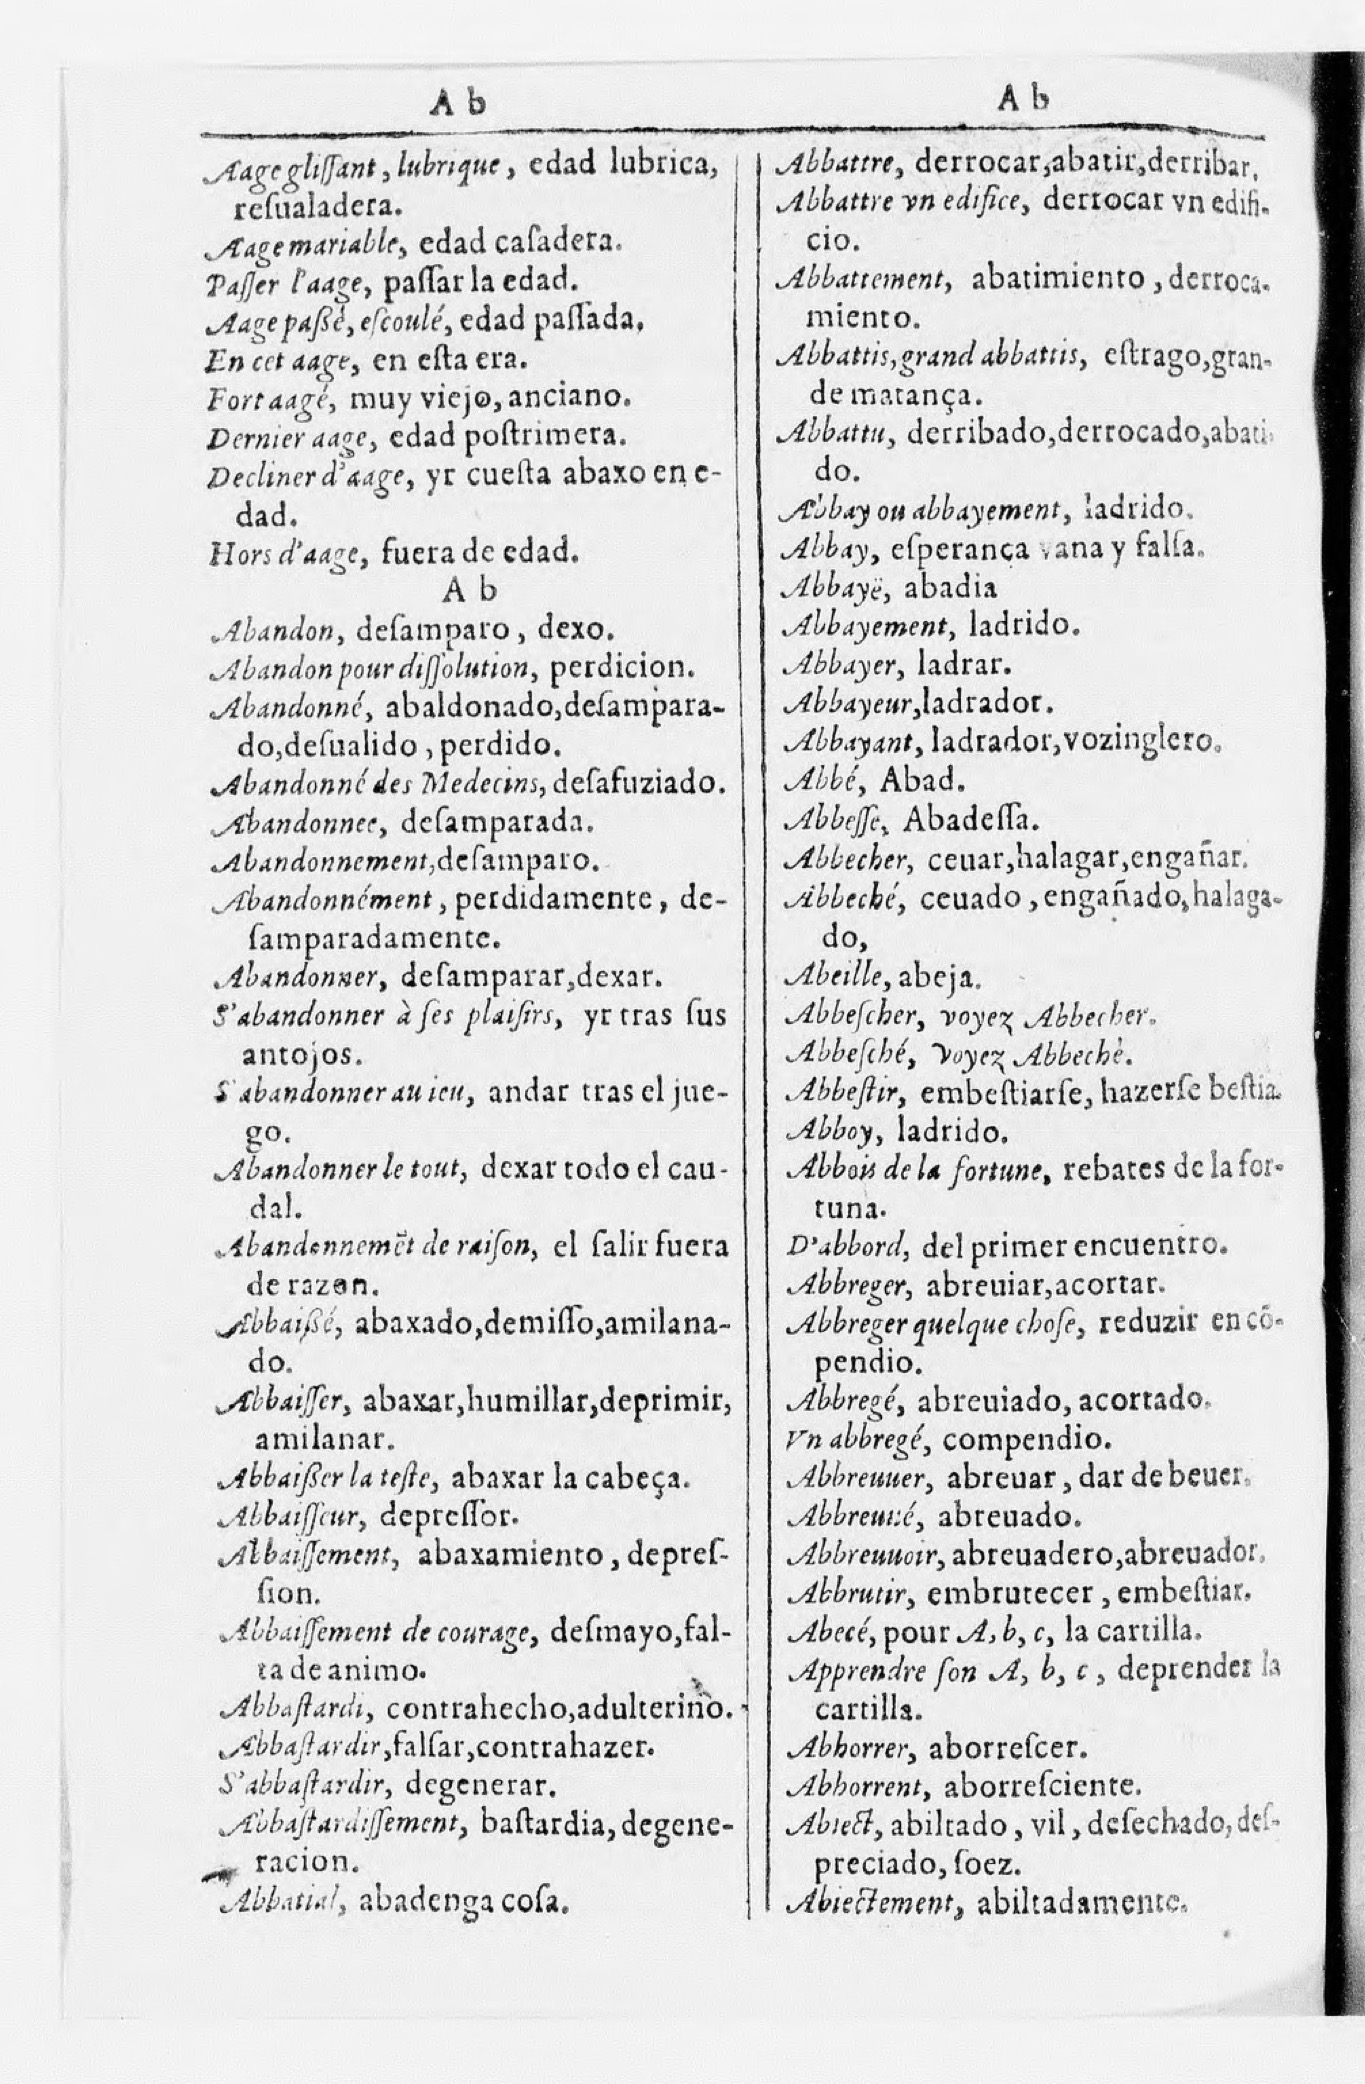 A b
Aage gliſſant, lubrique, edad lubrica,
reſualadera.
Aage mariable, edad caſadera.
Paſſer l'aage, paſſar la edad.
Aage paßé, eſcoulé, edad paſſada,
En cet aage, en eſta era.
Fort aagé, muy viejo, anciano.
Dernier aage, edad poſtrimera.
Decliner d'aage, yr cueſta abaxo en e-
dad.
Hors d'aage, fuera de edad.
A b
Abandon, deſamparo, dexo.
Abandon pour diſſolution, perdicion.
Abandonné, abaldonado, deſampara-
do, deſualido, perdido.
Abandonné des Medecins, deſafuziado.
Abandonnee, deſamparada.
Abandonnement, deſamparo.
Abandonnément, perdidamente, de-
ſamparadamente.
Abandonner, deſamparar, dexar.
S'abandonner à ſes plaiſirs, yr tras ſus
antojos.
S'abandonner au ieu, andar tras el jue-
go.
Abandonner le tout, dexar todo el cau-
dal.
Abandonnemẽt de raiſon, el ſalir fuera
de razon.
Abbaißé, abaxado, demiſſo, amilana-
do.
Abbaiſſer, abaxar, humillar, deprimir,
amilanar.
Abbaißer la teſte, abaxar la cabeça.
Abbaiſſeur, depreſſor.
Abbaiſſement, abaxamiento, depreſ-
ſion.
Abbaiſſement de courage, deſmayo, fal-
ta de animo.
Abbaſtardi, contrahecho, adulterino.
Abbaſtardir, falſar, contrahazer.
S'abbaſtardir, degenerar.
Abbaſtardiſſement, baſtardia, degene-
racion.
Abbatial, abadenga coſa.
A b
Abbattre, derrocar, abatir, derribar,
Abbattre vn edifice, derrocar vn edifi-
cio.
Abbattement, abatimiento, derroca-
miento.
Abbattis, grand abbattis, eſtrago, gran-
de matança.
Abbattu, derribado, derrocado, abati-
do.
Abbay ou abbayement, ladrido.
Abbay, eſperança vana y falſa.
Abbayë, abadia
Abbayement, ladrido.
Abbayer, ladrar.
Abbayeur, ladrador.
Abbayant, ladrador, vozinglero.
Abbé, Abad.
Abbeſſe, Abadeſſa.
Abbecher, ceuar, halagar, engañar.
Abbeché, ceuado, engañado, halaga-
do,
Abeille, abeja.
Abbeſcher, voyez Abbecher.
Abbeſché, voyez Abbechè.
Abbeſtir, embeſtiarſe, hazerſe beſtia.
Abboy, ladrido.
Abbois de la fortune, rebates de la for-
tuna.
D'abbord, del primer encuentro.
Abbreger, abreuiar, acortar.
Abbreger quelque choſe, reduzir en cõ-
pendio.
Abbregé, abreuiado, acortado.
Vn abbregé, compendio.
Abbreuuer, abreuar, dar de beuer.
Abbreuué, abreuado.
Abbreuuoir, abreuadero, abreuador.
Abbrutir, embrutecer, embeſtiar.
Abecé, pour A, b, c, la cartilla.
Apprendre ſon A, b, c, deprender la
cartilla.
Abhorrer, aborreſcer.
Abhorrent, aborreſciente.
Abiect, abiltado, vil, deſechado, deſ-
preciado, ſoez.
Abiectement, abiltadamente.